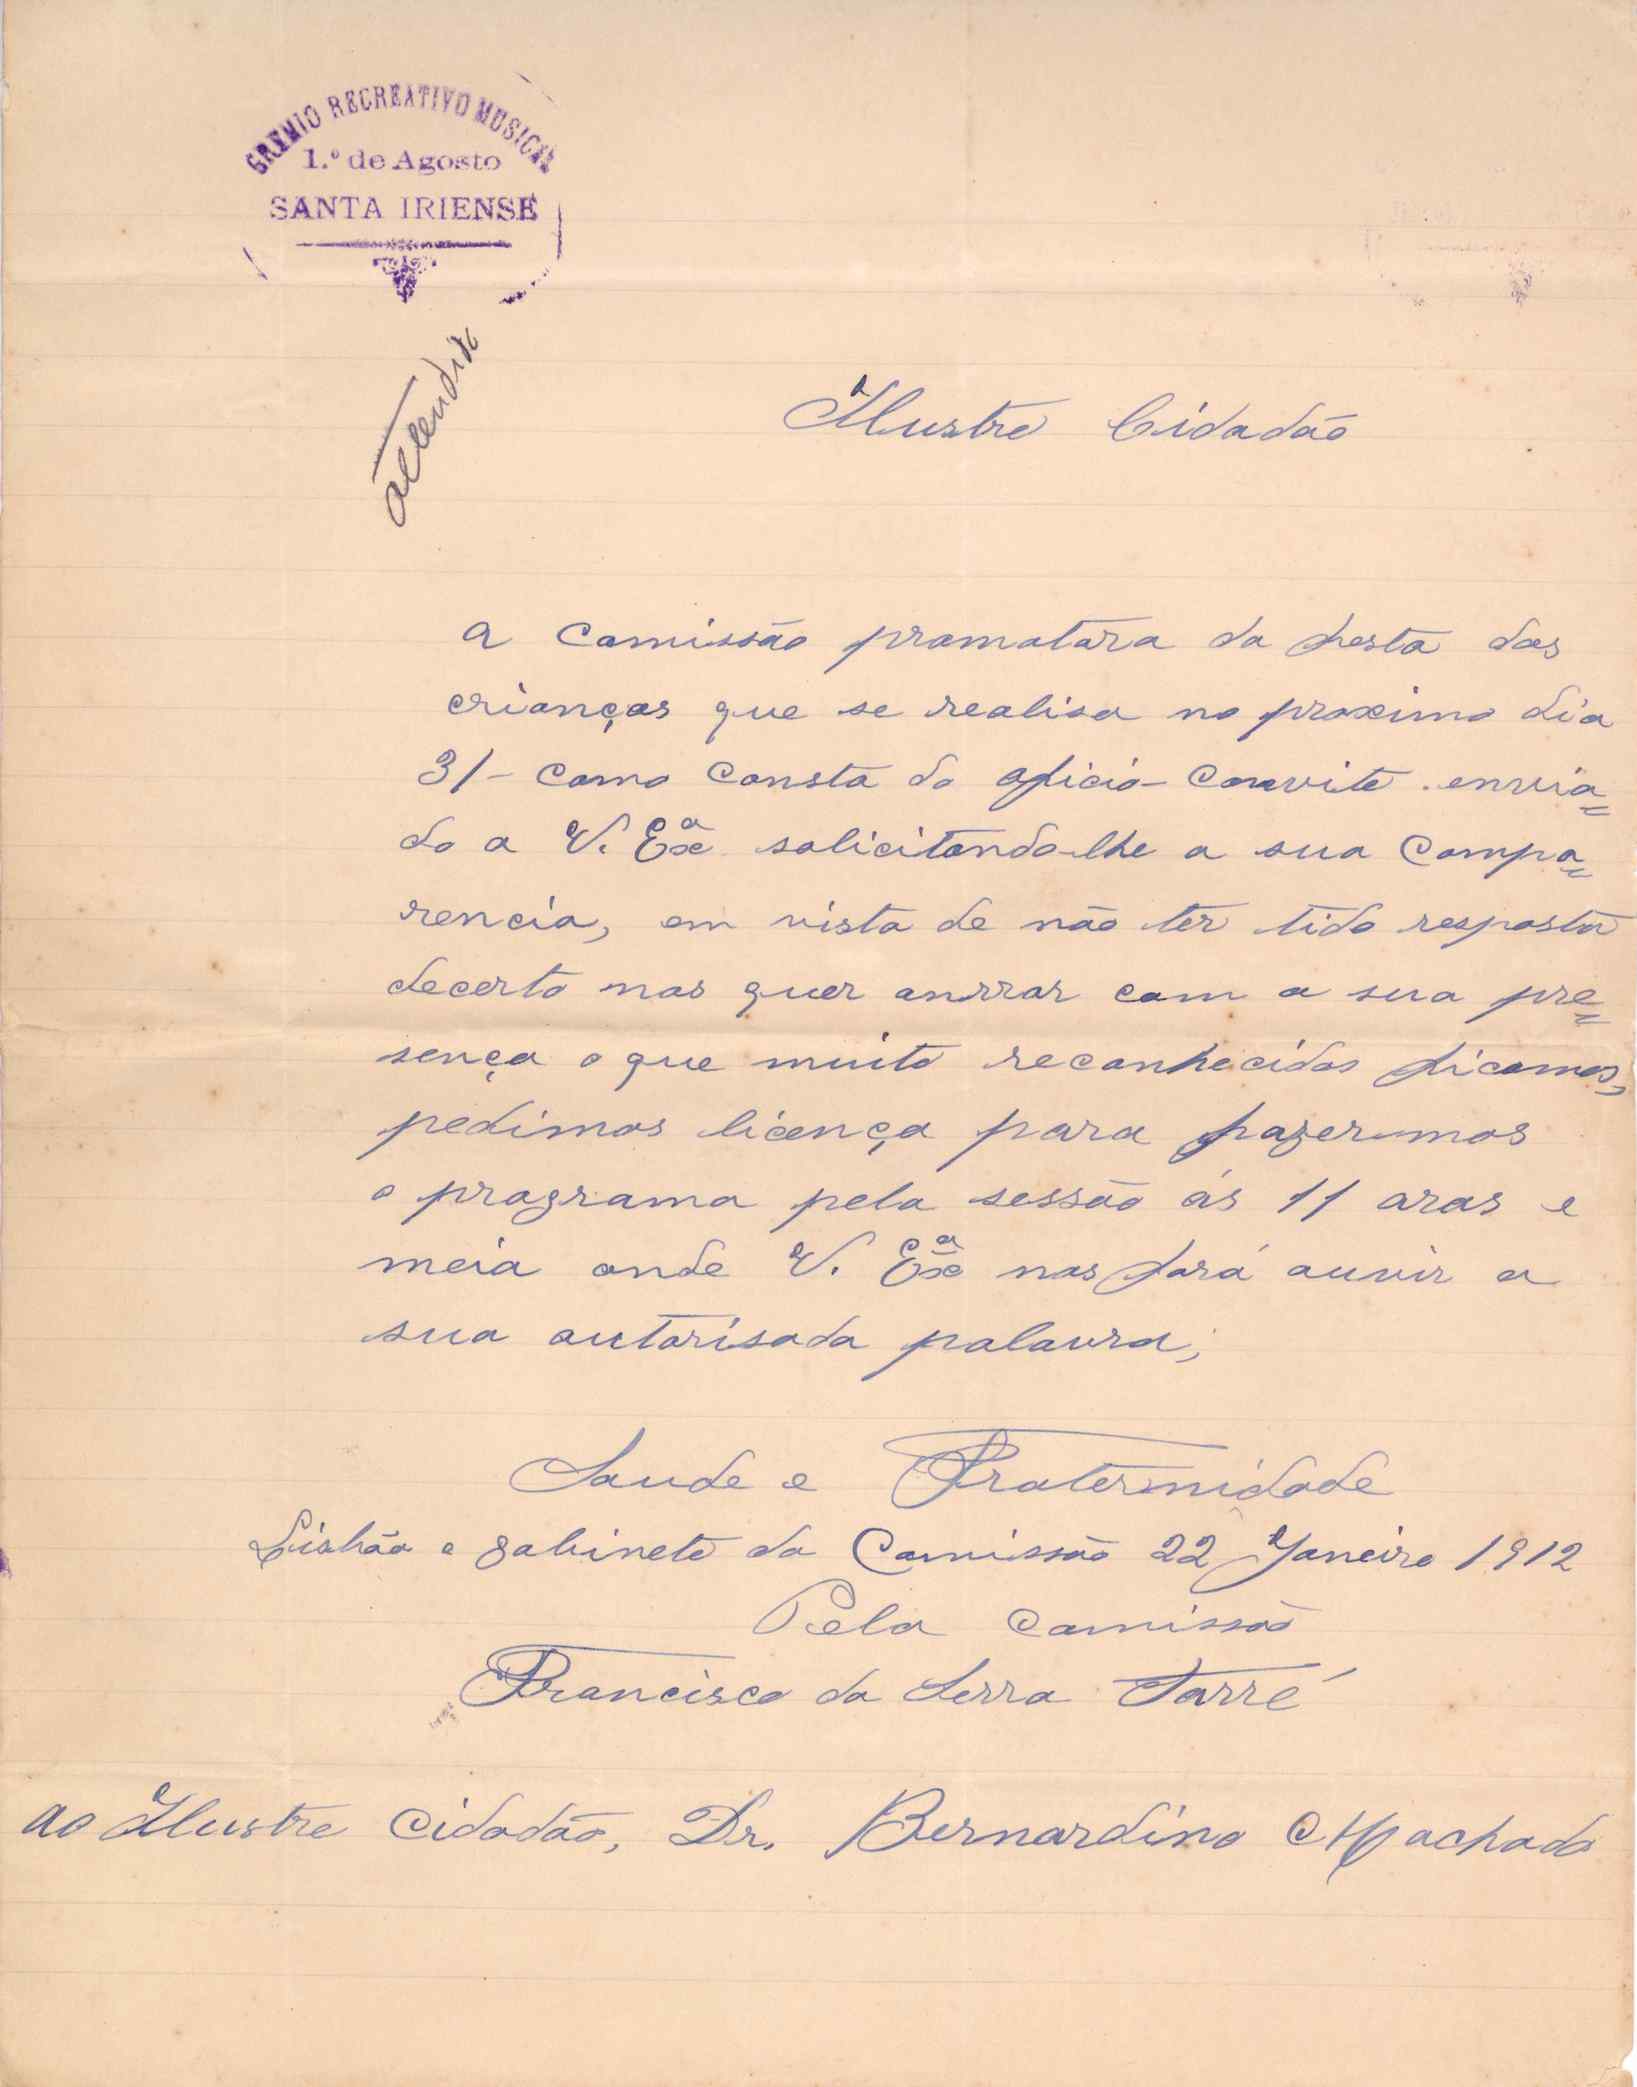 GREMIO RECREATIVO MUSICAL
1.º de Agosto
SANTA IRIENSE
attendida
Ilustre Cidadão
A Comissão promotora da festa das
crianças que se realisa no proximo dia
31 - como consta do oficio - convite envia=
do a V. Exª solicitando-lhe a sua Compa=
rencia, em vista de não ter tido resposta
decerto nos quer onrrar com a sua pre=
sença o que muito reconhecidos ficamos,
pedimos licença para fazermos
o programa pela sessão ás 11 oras e
meia onde V. Exª nos fará ouvir a
sua autorisada palavra;
Saude e Fraternidade
Lisbôa e gabinete da Comissão 22 Janeiro 1912
Pela Comissão
Francisco da Serra Torré
Ao Ilustre Cidadão, Dr. Bernardino Machado